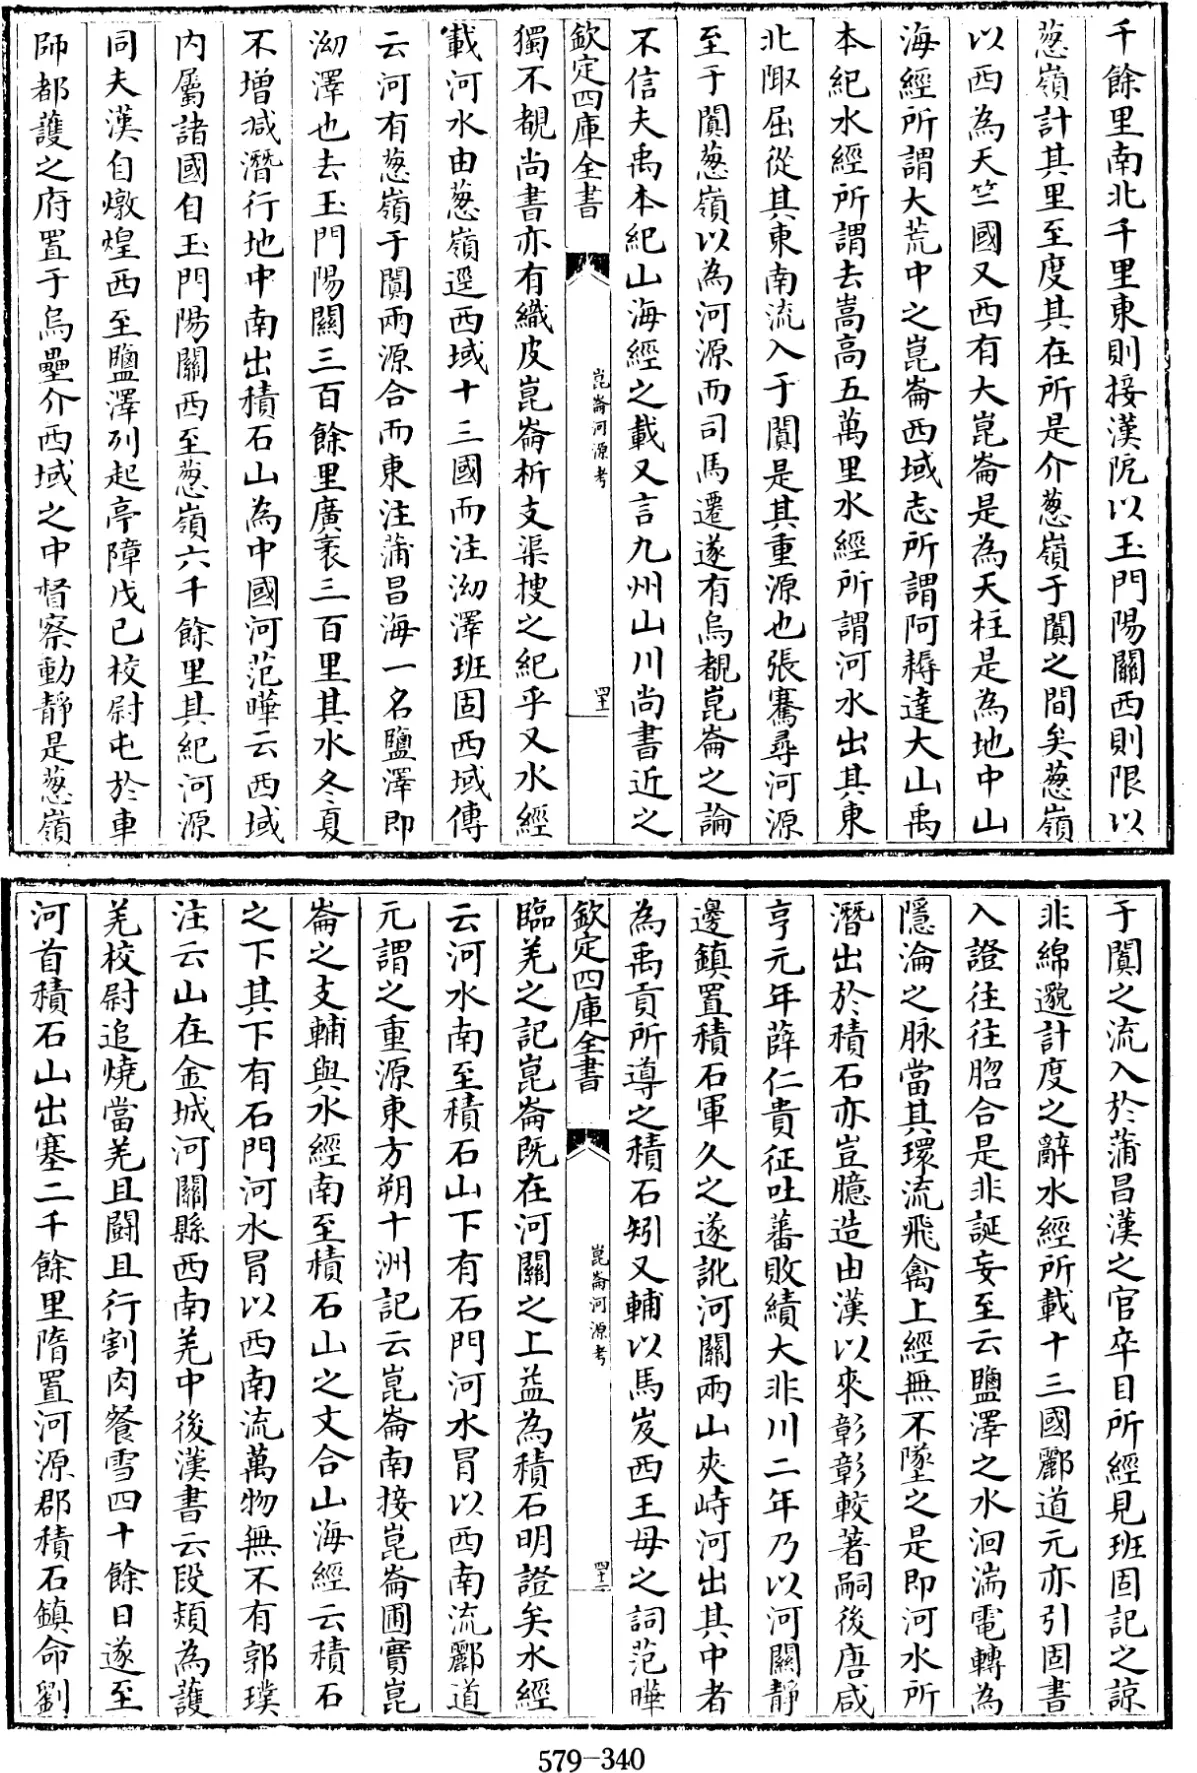 千餘里南北千里東則接漢阸以玉門陽關西則限以
葱嶺計其里至度其在所是介葱嶺于闐之間矣葱嶺
以西為天竺國又西有大崑崙是為天柱是為地中山
海經所謂大荒中之崑崙西域志所謂阿耨達大山禹
本紀水經所謂去嵩高五萬里水經所謂河水出其東
北陬屈從其東南流入于闐是其重源也張騫尋河源
至于闐葱嶺以為河源而司馬遷遂有烏覩崑崙之論
不信夫禹本紀山海經之載又言九州山川尚書近之
欽定四庫全書
崑崙河源考
四十一
獨不覩尚書亦有織皮崑崙析支渠搜之紀乎又水經
載河水由葱嶺逕西域十三國而注泑澤班固西域傳
云河有葱嶺于闐兩源合而東注蒲昌海一名鹽澤即
泑澤也去玉門陽關三百餘里廣袤三百里其水冬夏
不增減潛行地中南出積石山為中國河范曄云西域
内屬諸國自玉門陽關西至葱嶺六千餘里其紀河源
同夫漢自燉煌西至鹽澤列起亭障戊已校尉屯於車
師都護之府置于烏壘介西域之中督察動靜是葱嶺
于闐之流入於蒲昌漢之官卒目所經見班固記之諒
非綿邈計度之辭水經所載十三國酈道元亦引固書
入證往往脗合是非誕妄至云鹽澤之水洄湍電轉為
隱淪之脉當其環流飛禽上經無不墜之是即河水所
潛出於積石亦豈臆造由漢以來彰彰較著嗣後唐咸
亨元年薛仁貴征吐蕃敗績大非川二年乃以河關靜
邊鎮置積石軍久之遂訛河關兩山夾峙河出其中者
為禹貢所導之積石矧又輔以馬岌西王母之詞范曄
欽定四庫全書
崑崙河源考
四十二
臨羌之記崑崙既在河關之上益為積石明證矣水經
云河水南至積石山下有石門河水冒以西南流酈道
元謂之重源東方朔十洲記云崑崙南接崑崙圃實崑
崙之支輔與水經南至積石山之文合山海經云積石
之下其下有石門河水冒以西南流萬物無不有郭璞
注云山在金城河關縣西南羌中後漢書云段熲為護
羌校尉追燒當羌且闘且行割肉餐雪四十餘日遂至
河首積石山出塞二千餘里隋置河源郡積石鎮命劉
579-340